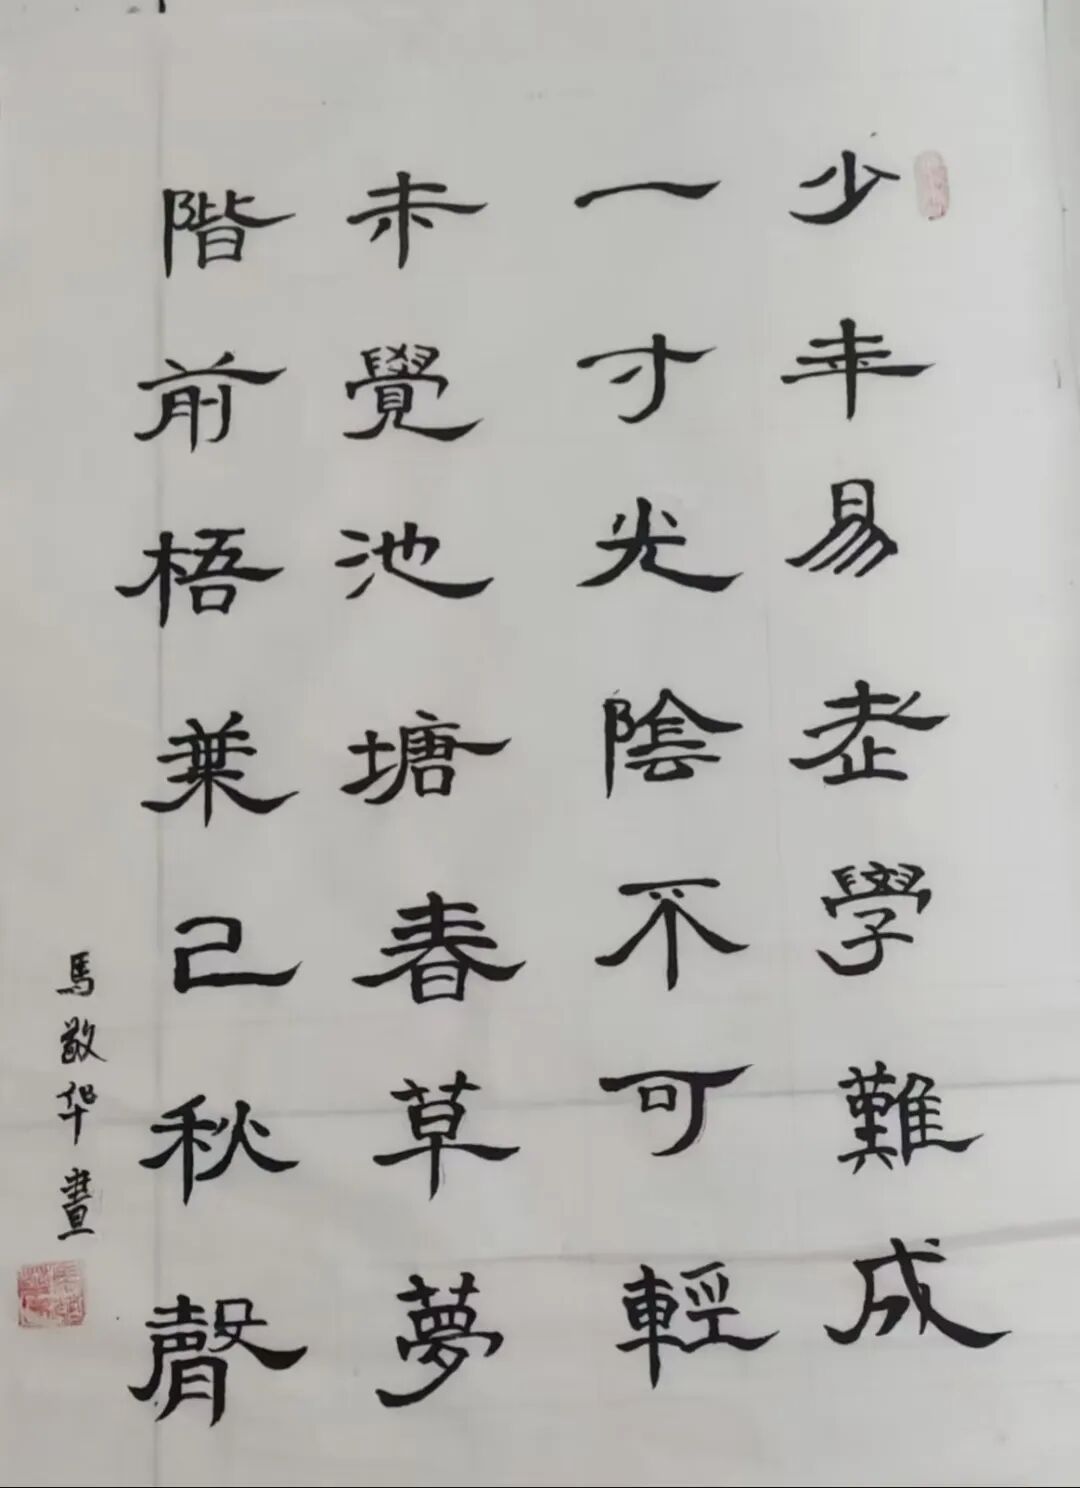 少年易老學難成
一寸光陰不可輕
未覺池塘春草夢
階前梧葉己秋聲
馬敬华書